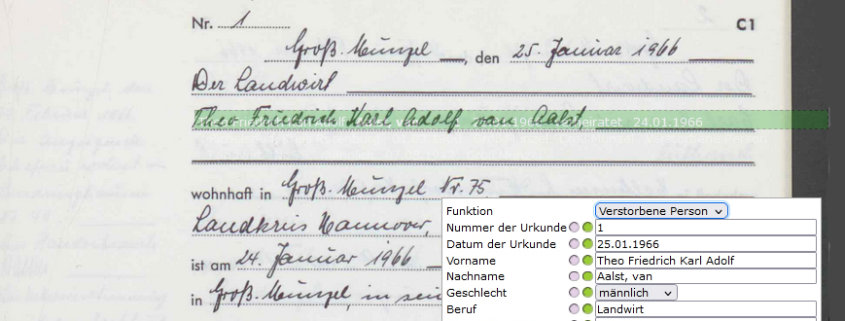 Nr. 1 C1
Groß Munzel, den 25. Januar 1966
Der Landwirt
Theo Friedrich Karl Adolf van Aalst,
wohnhaft in Groß-Munzel Nr. 75
Landkreis Hannover,
ist am 24. Januar 1966
in Groß-Munzel, in sei
Funktion Verstorbene Person
Nummer der Urkunde 1
Datum der Urkunde 25.01.1966
Vorname Theo Friedrich Karl Adolf
Nachname Aalst, van
Geschlecht männlich
Beruf Landwirt